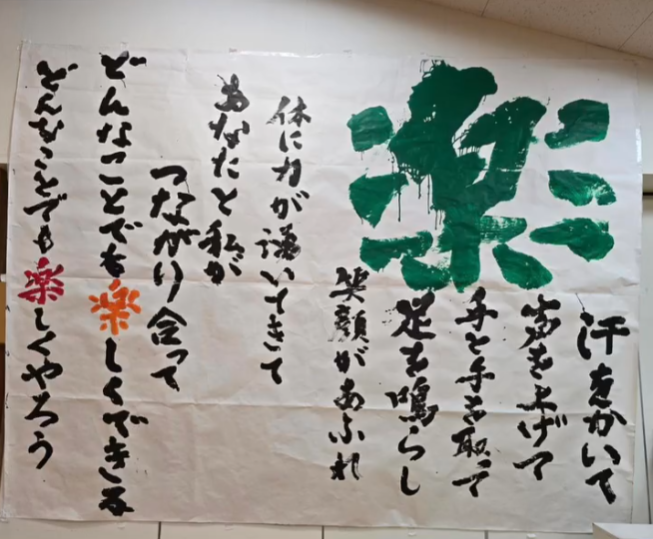 楽
汗をかいて
声を上げて
手と手を取って
足を鳴らし
笑顔があふれ
体に力が湧いてきて
あなたと私が
つながり合って
どんなことでも楽しくできる
どんなことでも楽しくやろう